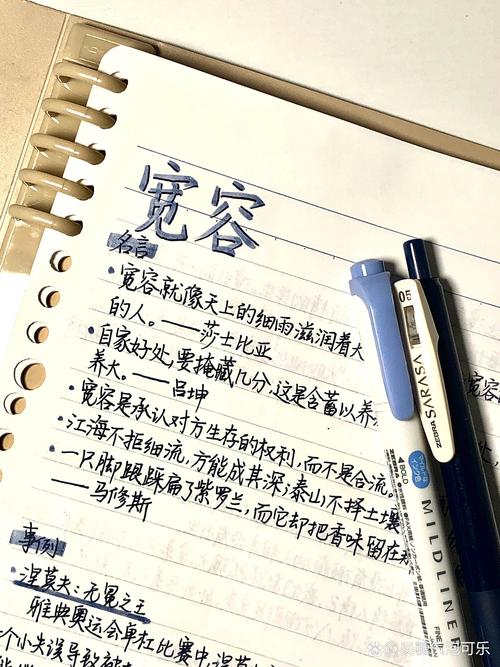 宽容
名言
·宽容就像天上的细雨滋润着大
的人。——莎士比亚
·自家好处,要掩藏几分,这是含蓄以养
养大。——吕坤
·宽容是承认对方生存的权利,而不是合流。
·江海不拒细流,方能成其深;泰山不择土壤
·一只脚跟踩扁了紫罗兰,而它却把香味留在
——马修斯
事例
·涅莫夫:无冕之王
雅典奥运会单杠比赛中,涅莫
个小失误导致被
05
ZEBRA SARASA
BOLD
MILDLINER
FINE
可乐